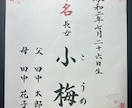 令和二年七月二十六日生
命名
長女
小梅
こうめ
父 田中太郎
母 田中花子